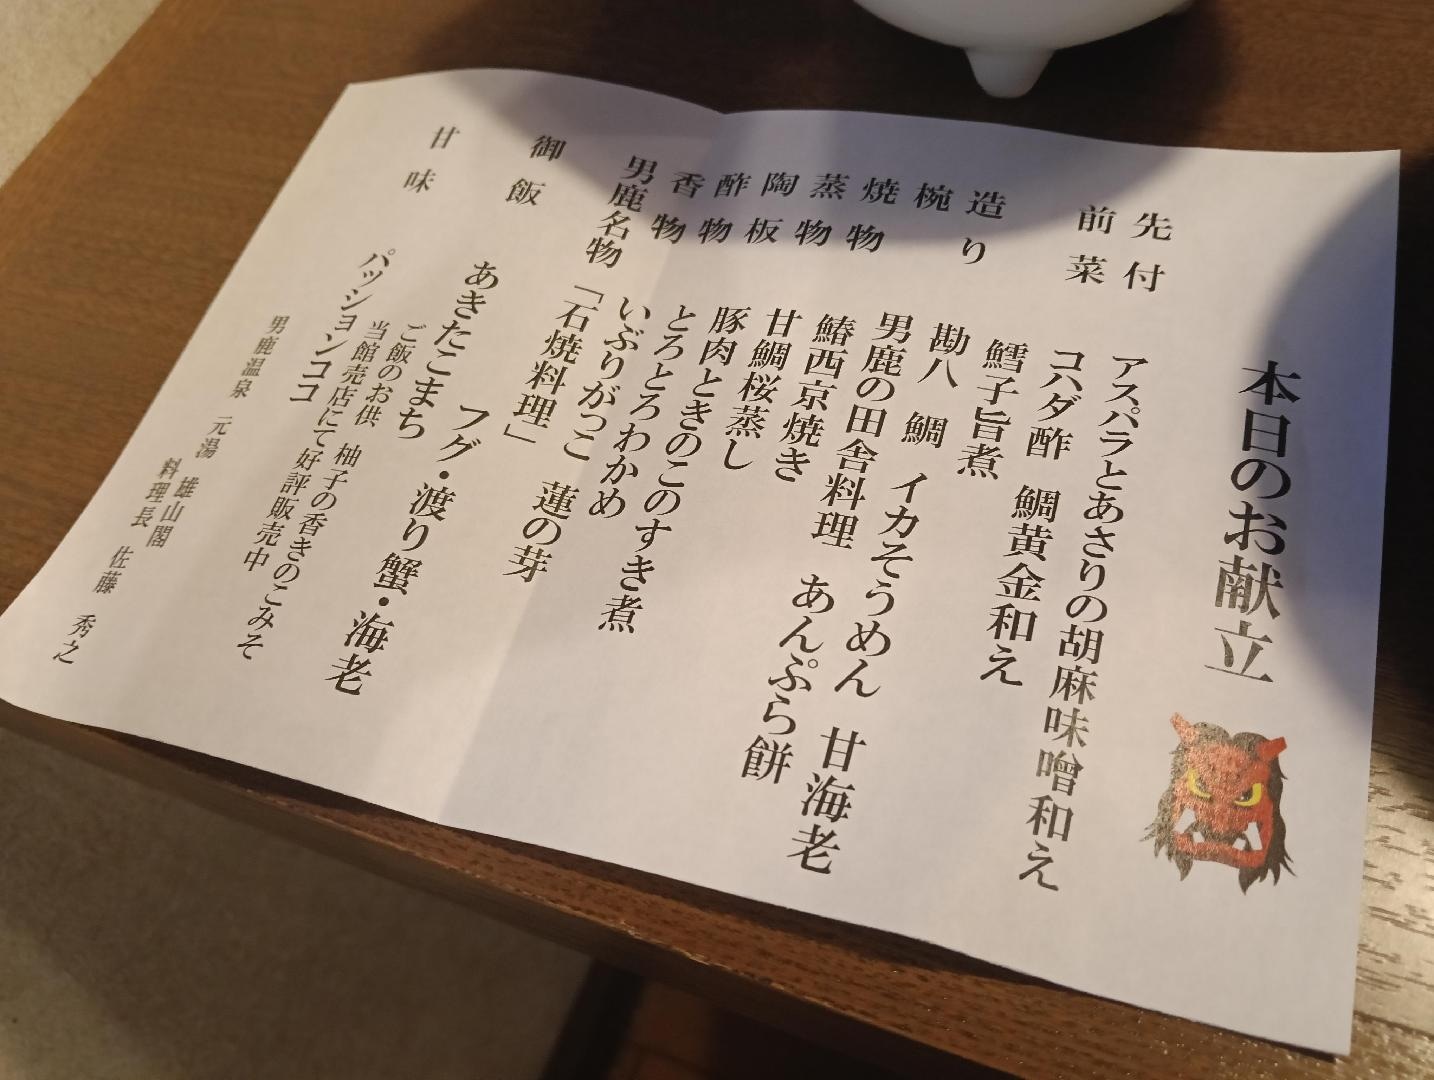 本日のお献立
先付 アスパラとあさりの胡麻味噌和え
前菜 コハダ酢 鯛黄金和え
鱈子旨煮
造り 勘八 鯛 イカそうめん 甘海老
椀 男鹿の田舎料理 あんぷら餅
焼物 鰆西京焼き
蒸物 甘鯛桜蒸し
陶板 豚肉ときのこのすき煮
酢物 とろとろわかめ
香物 いぶりがっこ 蓮の芽
男鹿名物「石焼料理」
フグ・渡り蟹・海老
御飯 あきたこまち
ご飯のお供 柚子の香きのこみそ
当館売店にて好評販売中
甘味 パッションココ
男鹿温泉 元湯 雄山閣
料理長 佐藤 秀之